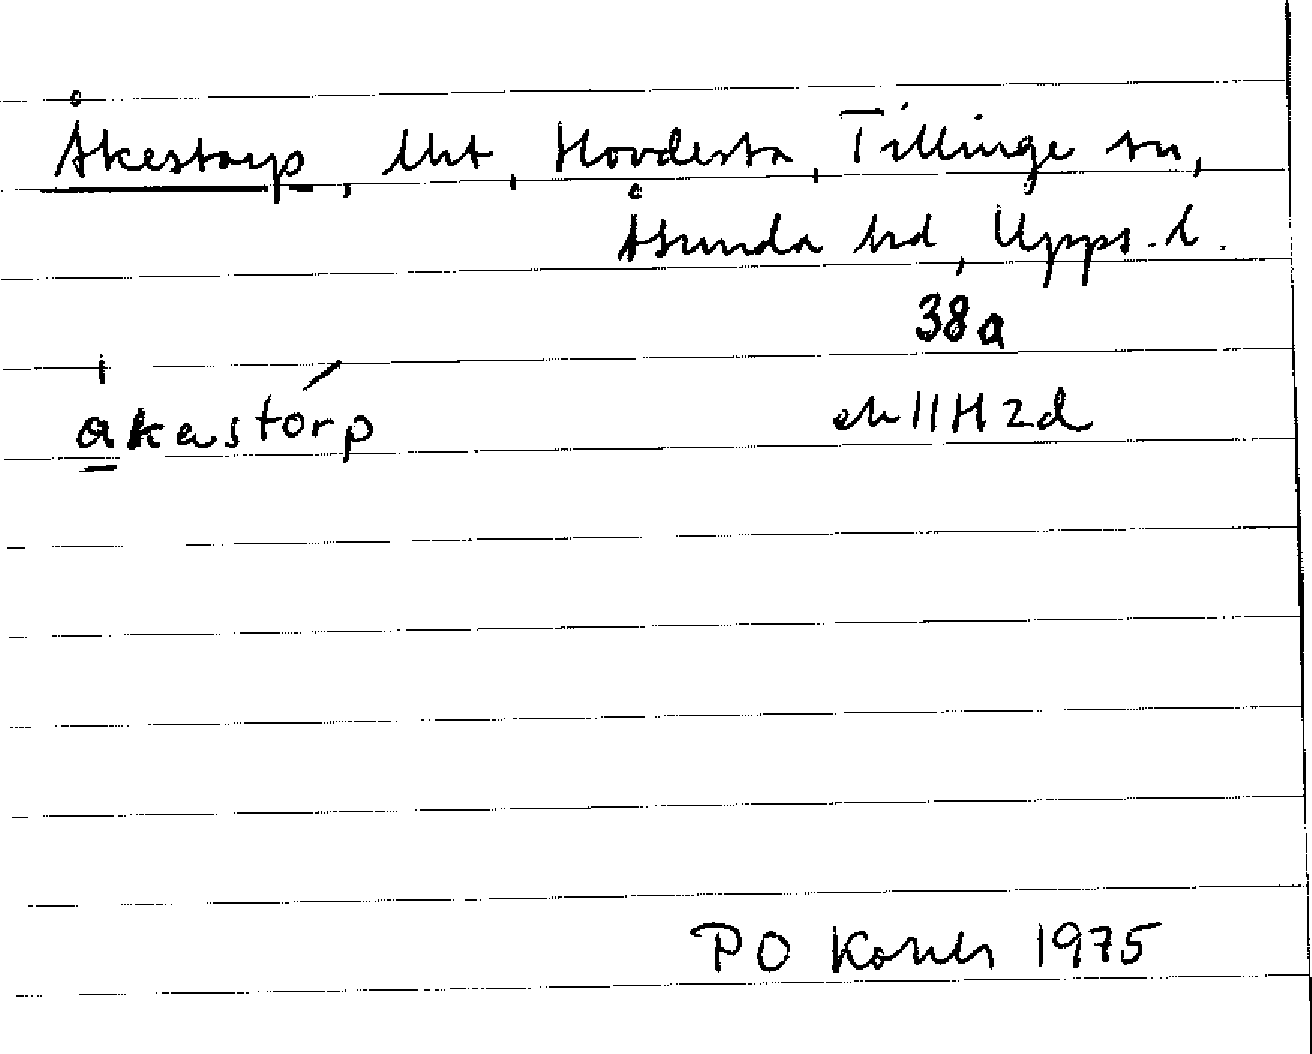 Åkestorp, lht, Hovdesta, Tillinge sn,
Åsunda hd, Upps. l.
38a
akastorp ek 11H 2d
PO Korner 1975